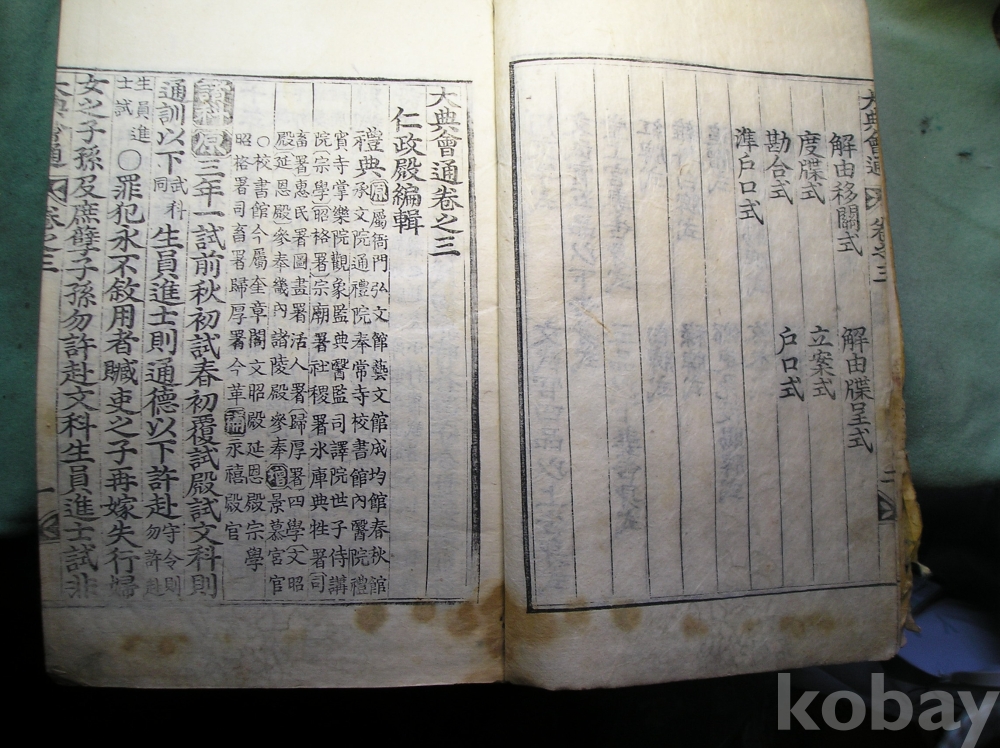 大典會通 卷之三 二
解由移關式 解由牒呈式
度牒式 立案式
勘合式 戶口式
準戶口式
大典會通卷之三
仁政殿編輯
禮典 原 屬衙門弘文館藝文館成均館春秋館
承文院通禮院奉常寺校書館內醫院禮
賓寺掌樂院觀象監典醫監司譯院世子侍講
院宗學昭格署宗廟署社稷署氷庫典牲署司
畜署惠民署圖畫署活人署歸厚署四學文昭
殿延恩殿參奉畿內諸陵殿參奉 續 景慕宮官
○校書館今屬奎章閣文昭殿延恩殿宗學
昭格署司畜署歸厚署今革 補 永禧殿官
諸科 原 三年一試前秋初試春初覆試殿試文科則
通訓以下 武科同 生員進士則通德以下許赴 守令則勿許赴
生員進士試 ○罪犯永不敘用者贓吏之子再嫁失行婦
女之子孫及庶孼子孫勿許赴文科生員進士試非
大典會通 卷之三 一
kobay